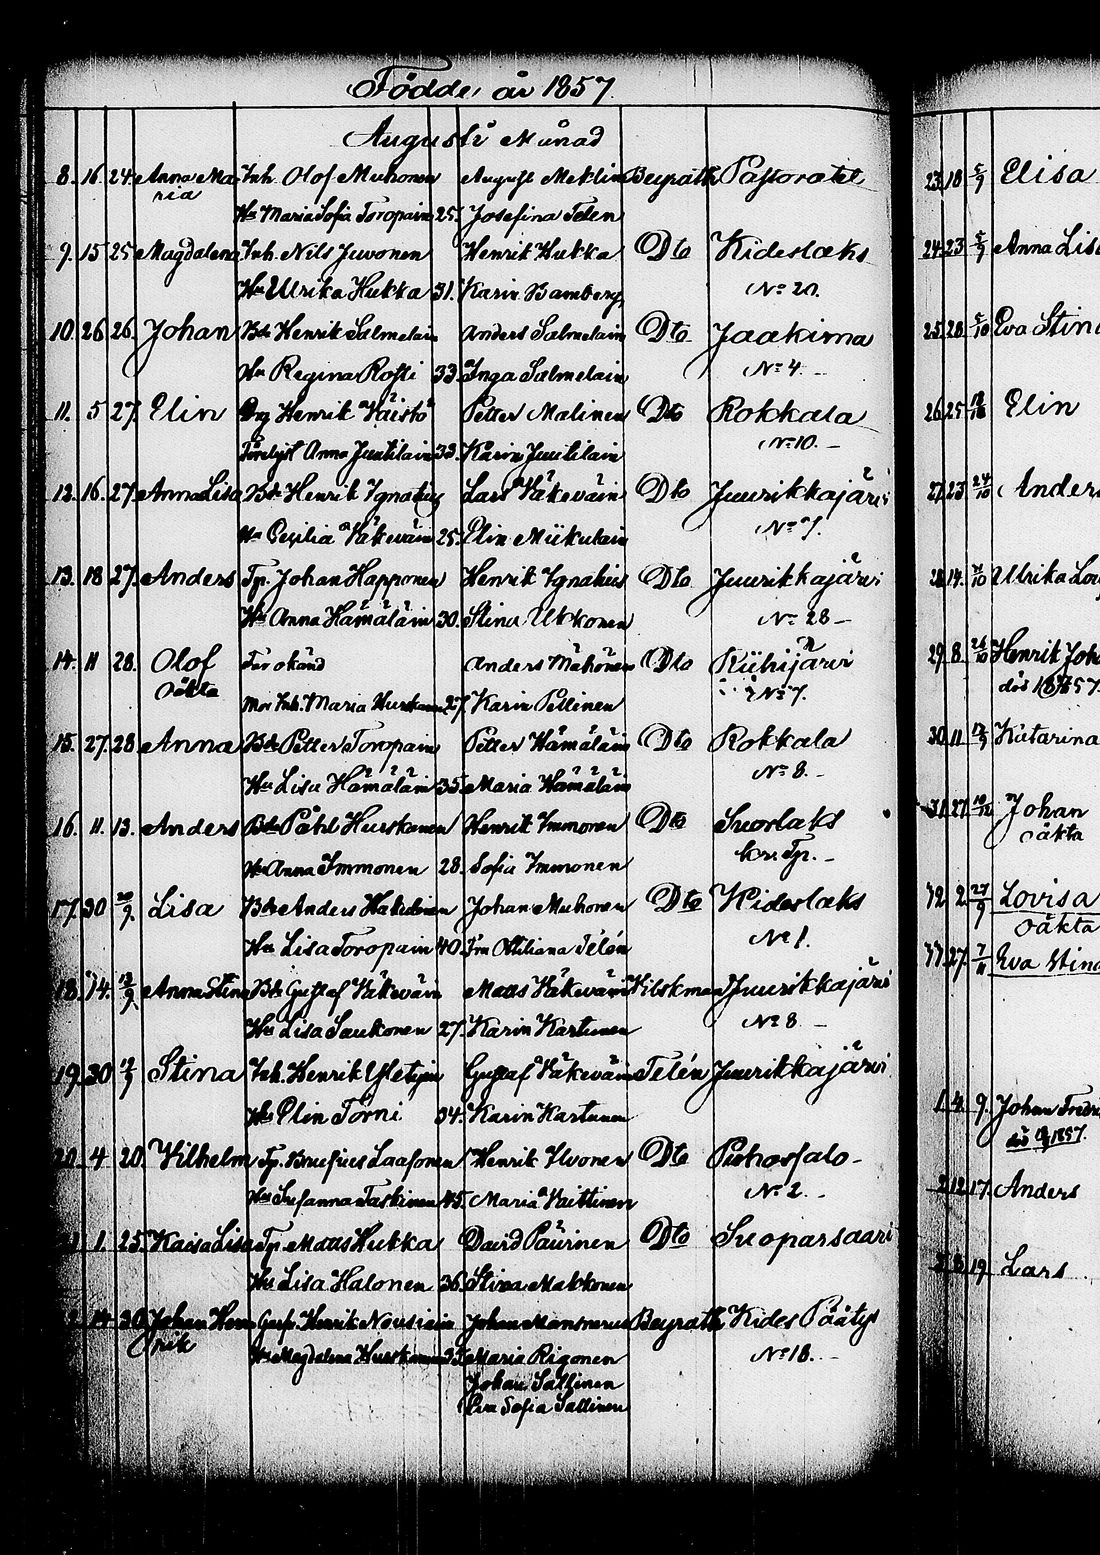 Födde år 1857.
Augusti Månad
8. 16. 24. Anna Ma- Inh. Olof Muhonen August Meklin Beyrath Pastoratet
ria
Hu Maria Sofia Toropain 25. Josefina Telen
9. 15 25 Magdalena Inh. Nils Juvonen Henrik Hukka Dto Kideslaks
Hu Ulrika Hukka 31. Karin Bamberg No 20.
10. 26 26. Johan Bd. Henrik Salmelain Anders Salmelain Dto Jaakima
Hu Regina Rossi 33. Inga Salmelain No 4. -
11. 5 27. Elin Drg Henrik Väistö Petter Malinen Dto Rokkala
Anna Juutilain 33. Karin Juutilain No 10. -
12. 16. 27. Anna Lisa Bd. Henrik Ignatius Lars Väkeväin Dto Juurikkajärvi
Hu Cecilia Väkeväin 25. Elin Miikulain No 7.
13. 18 27. Anders Tp. Johan Happonen Henrik Ignatius Dto Juurikkajärvi
Hu Anna Hämäläin 30. Stina Ukkonen No 28 -
14. 11 28. Olof Far okänd Anders Mähönen Dto Kiihijärvi
oäkta
Mor Inh. Maria Hurskainen 27. Karin Pellinen No 7.
15. 27. 28. Anna Bd. Petter Toropain Petter Hämäläin Dto Rokkala
Hu Lisa Hämäläin 35. Maria Hämäläin No 8. -
16. 11. 13. Anders Bd. Påhl Hurskanen Henrik Immonen Dto Suorlaks
Hu Anna Immonen 28. Sofia Immonen Kr. Tp. -
17. 30 Lisa Bd. Anders Johan Muhonen Dto Kideslaks
Hu Lisa Toropain 40. Fru Ottiliana Telén No 1.
18. 14. Anna Stina Bd. Gustaf Väkeväin Maas Väkeväin Juurikkajärvi
Hu Lisa Saukonen 27. Karin Kartunen No 8 -
19. 30 Stina Inh. Henrik Gustaf Väkeväin Telén Juurikkajärvi
Hu Elin Törni 34. Karin Kartunen
20. 4 20. Vilhelm Tp. Laasonen Henrik Ilvonen Dto
Hu Susanna Taskinen 45. Maria Vaittinen No 2. -
1. 25. Kaisa Lisa Tp. Maas Hukka David Päivinen Dto Suoparsaari
Hu Lisa Halonen 36. Stina Makkonen
30. Johan Hen- Henrik Nousiain Johan Mansnerus Beyrath Kides Päätys
rik
Hu Magdalena Hurskainen 33. Maria Rigonen No 18. -
Johan Sallinen
Eva Sofia Sallinen
23. 18 5/9 Elisa
24. 23 Anna Lis
25. 28 Eva Stin
26. 25 Elin
27. 23 24/10 Anders
28. 14. Ulrika
29. 8. 26/10 Henrik Joh
30. 11 Katarina
31. 27. Johan
oäkta
2 27/9 Lovisa
oäkta
27. Eva Stina
1. 4. 9. Johan Fredr
1857.
2. 12. 17. Anders
19. Lars